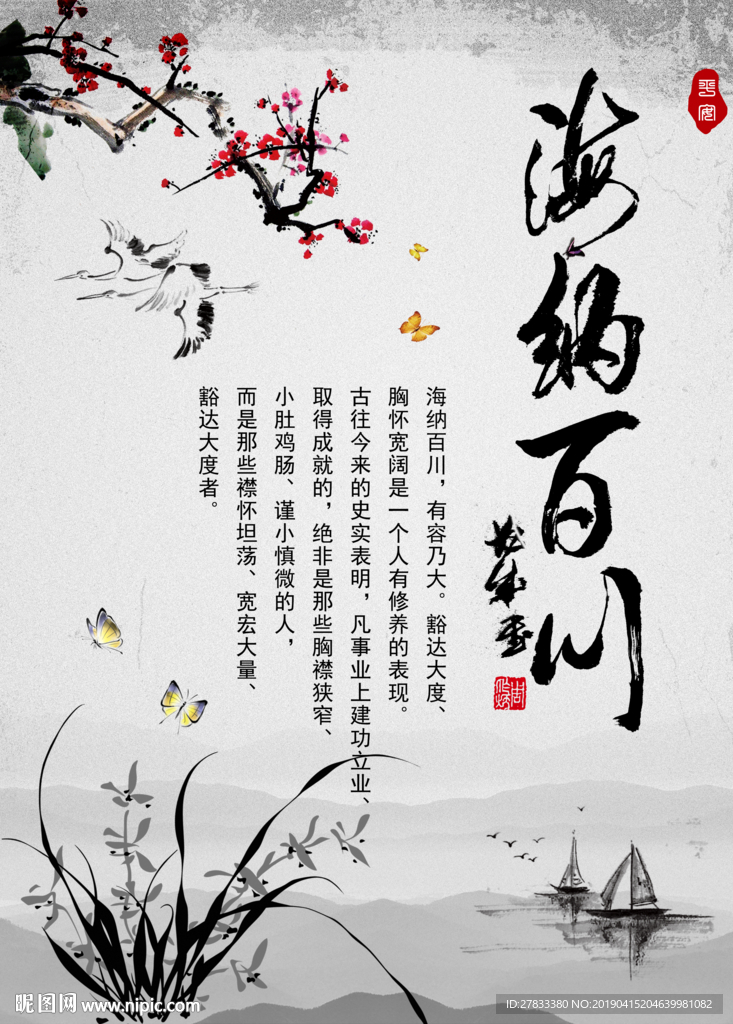 平安
海纳百川
海纳百川，有容乃大。豁达大度、
胸怀宽阔是一个人有修养的表现。
古往今来的史实表明，凡事业上建功立业、
取得成就的，绝非是那些胸襟狭窄、
小肚鸡肠、谨小慎微的人，
而是那些襟怀坦荡、宽宏大量、
豁达大度者。
昵图网 www.nipic.com
ID:27833380 NO:20190415204639981082